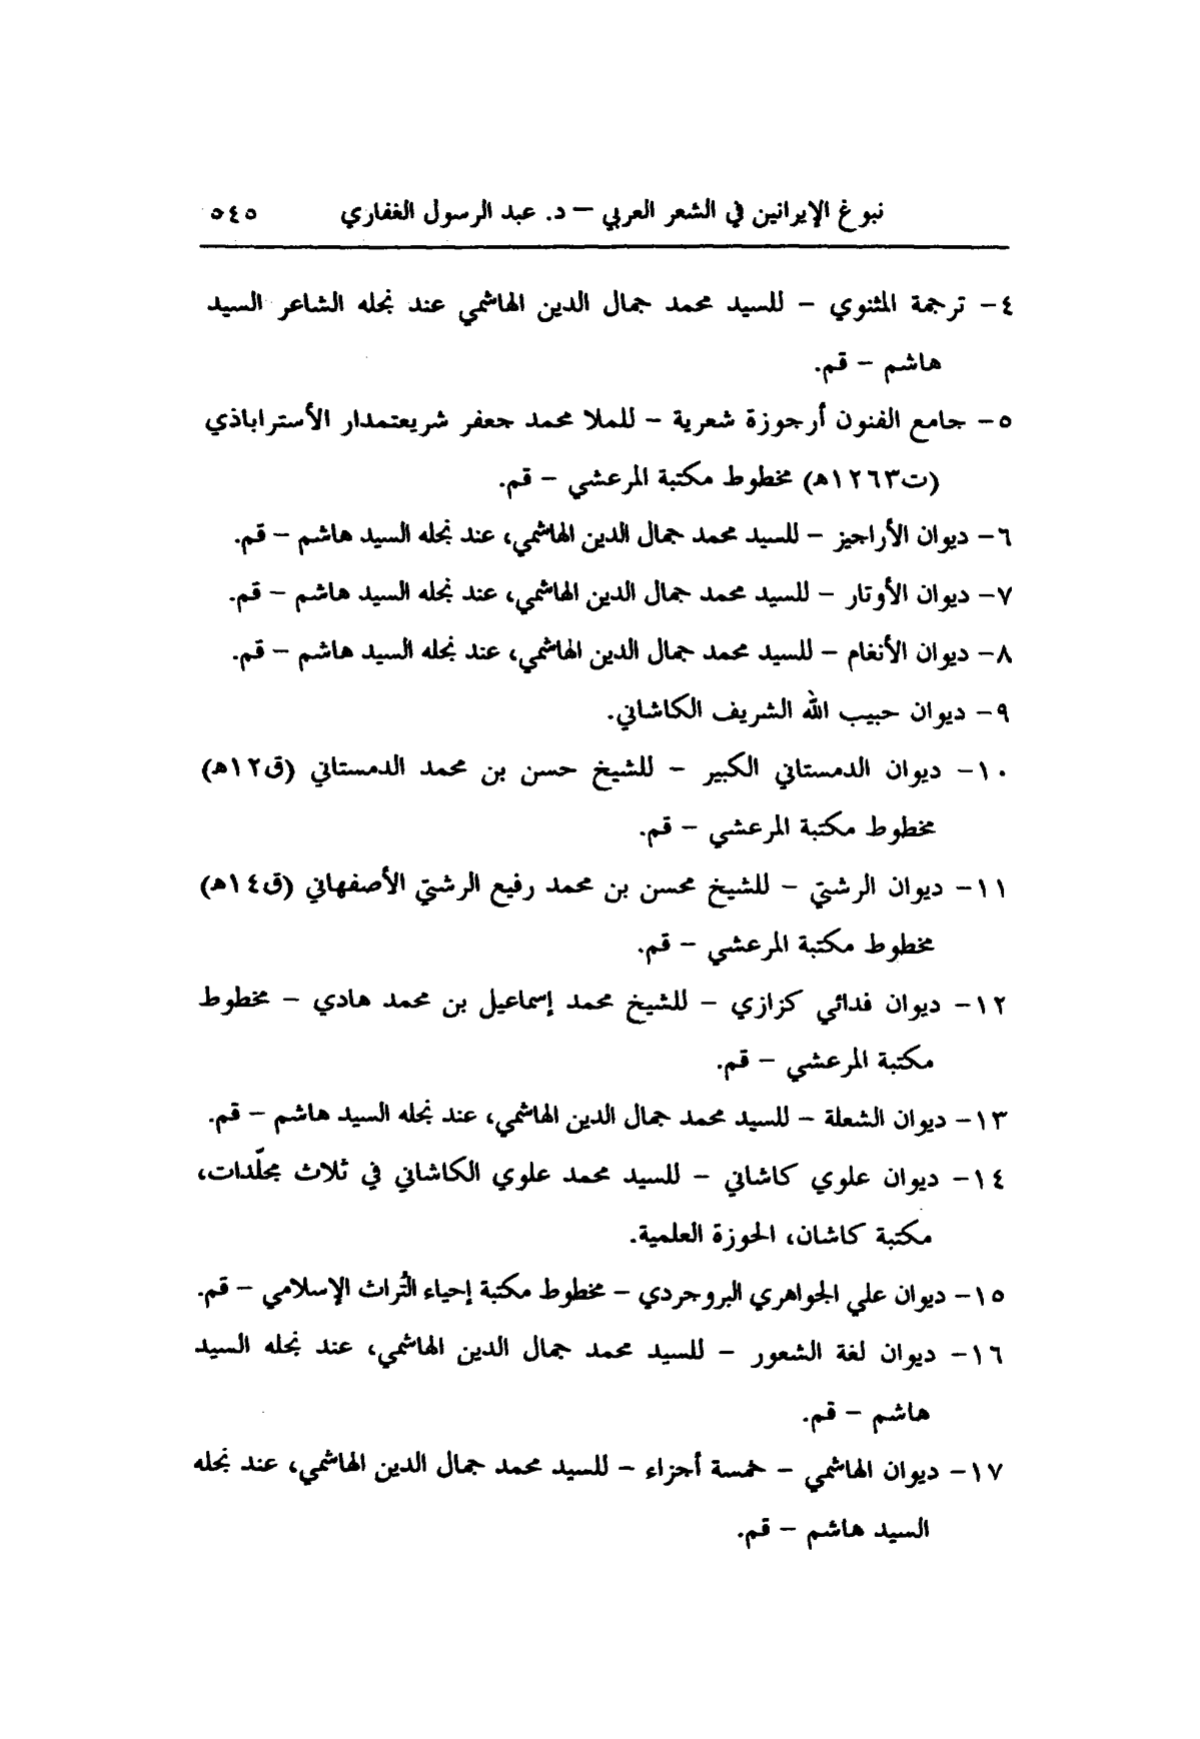 نبوغ الإيرانين في الشعر العربي – د. عبد الرسول الغفاري ٥٤٥
٤- ترجمة المثنوي – للسيد محمد جمال الدين الهاشمي عند نجله الشاعر السيد
هاشم – قم.
٥- جامع الفنون أرجوزة شعرية – للملا محمد جعفر شريعتمدار الأستراباذي
(ت١٢٦٣ه) مخطوط مكتبة المرعشي – قم.
٦- ديوان الأراجيز – للسيد محمد جمال الدين الهاشمي، عند نجله السيد هاشم – قم.
٧- ديوان الأوتار – للسيد محمد جمال الدين الهاشمي، عند نجله السيد هاشم – قم.
٨- ديوان الأنغام – للسيد محمد جمال الدين الهاشمي، عند نجله السيد هاشم – قم.
٩- ديوان حبيب الله الشريف الكاشاني.
١٠- ديوان الدمستاني الكبير – للشيخ حسن بن محمد الدمستاني (ق١٢ه)
مخطوط مكتبة المرعشي – قم.
١١- ديوان الرشتي – للشيخ محسن بن محمد رفيع الرشتي الأصفهاني (ق١٤ه)
مخطوط مكتبة المرعشي – قم.
١٢- ديوان فدائي كزازي – للشيخ محمد إسماعيل بن محمد هادي – مخطوط
مكتبة المرعشي – قم.
١٣- ديوان الشعلة – للسيد محمد جمال الدين الهاشمي، عند نجله السيد هاشم – قم.
١٤- ديوان علوي كاشاني – للسيد محمد علوي الكاشاني في ثلاث مجلّدات،
مكتبة كاشان، الحوزة العلمية.
١٥- ديوان علي الجواهري البروجردي – مخطوط مكتبة إحياء التُراث الإسلامي – قم.
١٦- ديوان لغة الشعور – للسيد محمد جمال الدين الهاشمي، عند نجله السيد
هاشم – قم.
١٧- ديوان الهاشمي – خمسة أجزاء – للسيد محمد جمال الدين الهاشمي، عند نجله
السيد هاشم – قم.